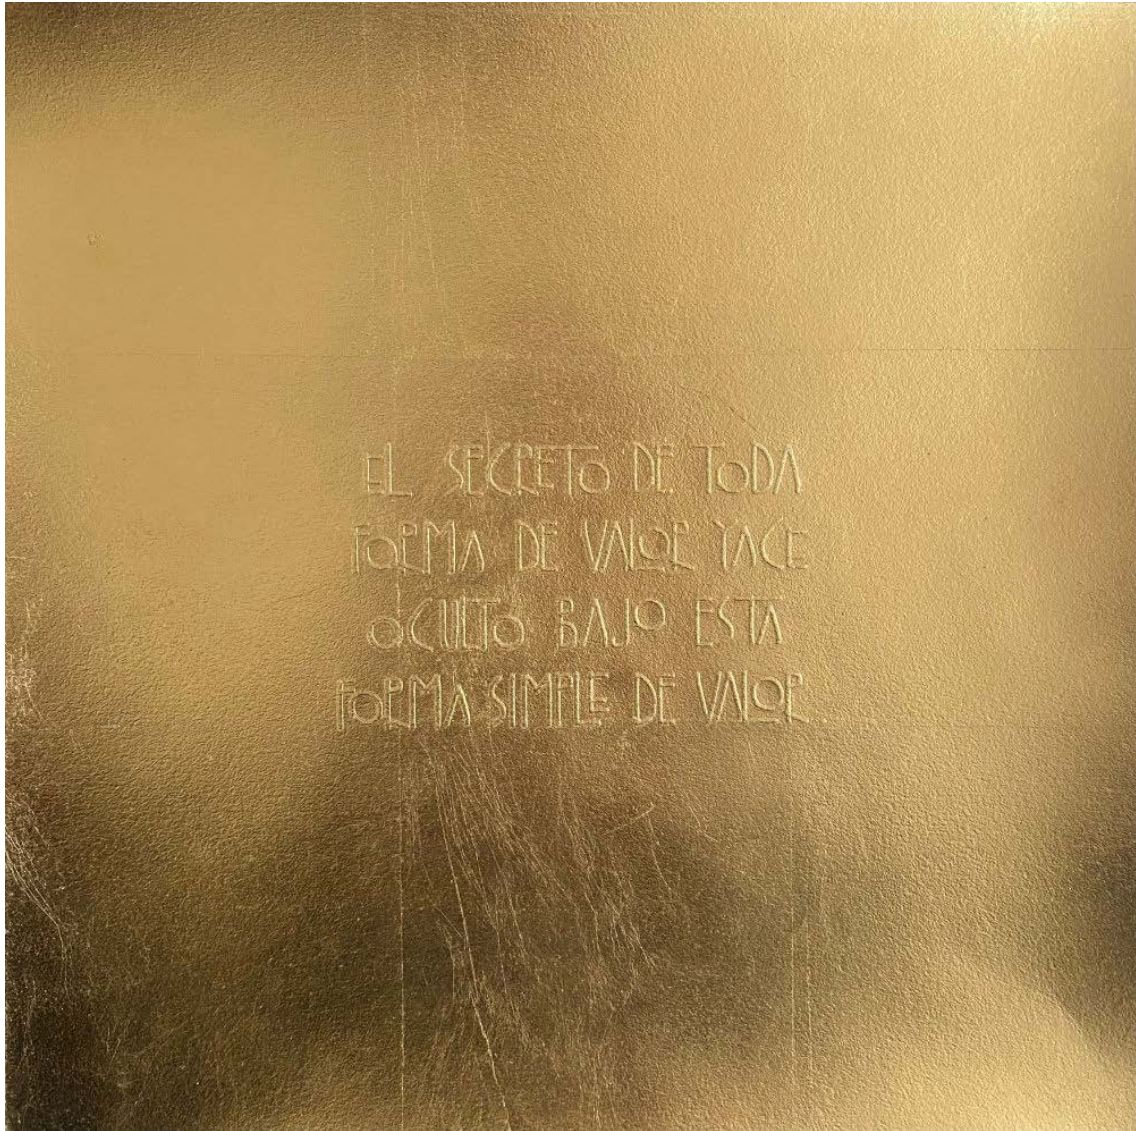 EL SECRETO DE TODA
FORMA DE VALOR YACE
OCULTO BAJO ESTA
FORMA SIMPLE DE VALOR.